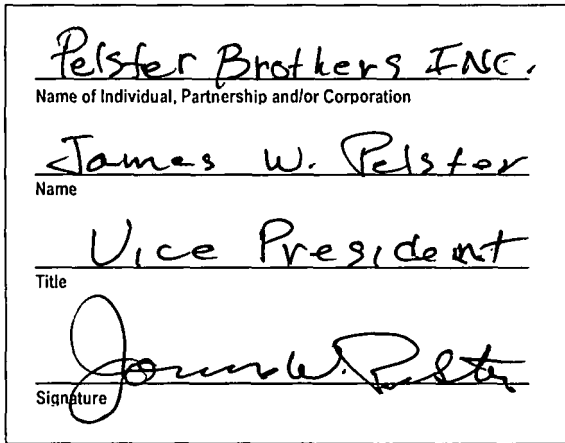 Pelster Brothers INC.
Name of Individual, Partnership and/or Corporation
James W. Pelster
Name
Vice President
Title
James W. Pelster
Signature